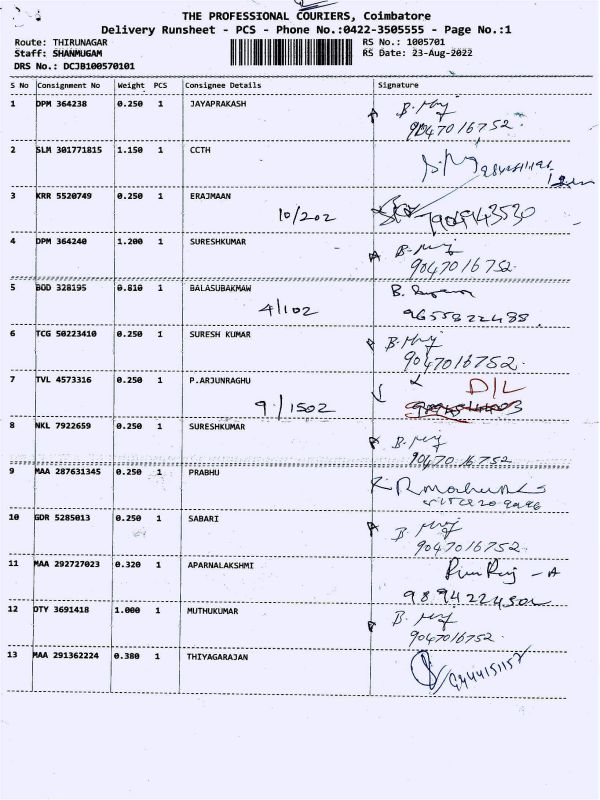 THE PROFESSIONAL COURIERS, Coimbatore
Delivery Runsheet - PCS - Phone No.:0422-3505555 - Page No.:1
Route: THIRUNAGAR RS No.: 1005701
Staff: SHANMUGAM RS Date: 23-Aug-2022
DRS No.: DCJB100570101
S No Consignment No Weight PCS Consignee Details Signature
1 DPM 364238 0.250 1 JAYAPRAKASH
9047016752
2 SLM 301771815 1.150 1 CCTH
3 KRR 5520749 0.250 1 ERAJMAAN
10/202 7904943530
4 DPM 364240 1.200 1 SURESHKUMAR
9047016752
5 BOD 328195 0.810 1 BALASUBAKMAW B.
4/102 9655822488
6 TCG 50223410 0.250 1 SURESH KUMAR
9047016752
7 TVL 4573316 0.250 1 P.ARJUNRAGHU D/L
9/1502
8 NKL 7922659 0.250 1 SURESHKUMAR
9047016752
9 MAA 287631345 0.250 1 PRABHU
10 GDR 5285013 0.250 1 SABARI
9047016752
11 MAA 292727023 0.320 1 APARNALAKSHMI
12 OTY 3691418 1.000 1 MUTHUKUMAR
9047016752
13 MAA 291362224 0.380 1 THIYAGARAJAN